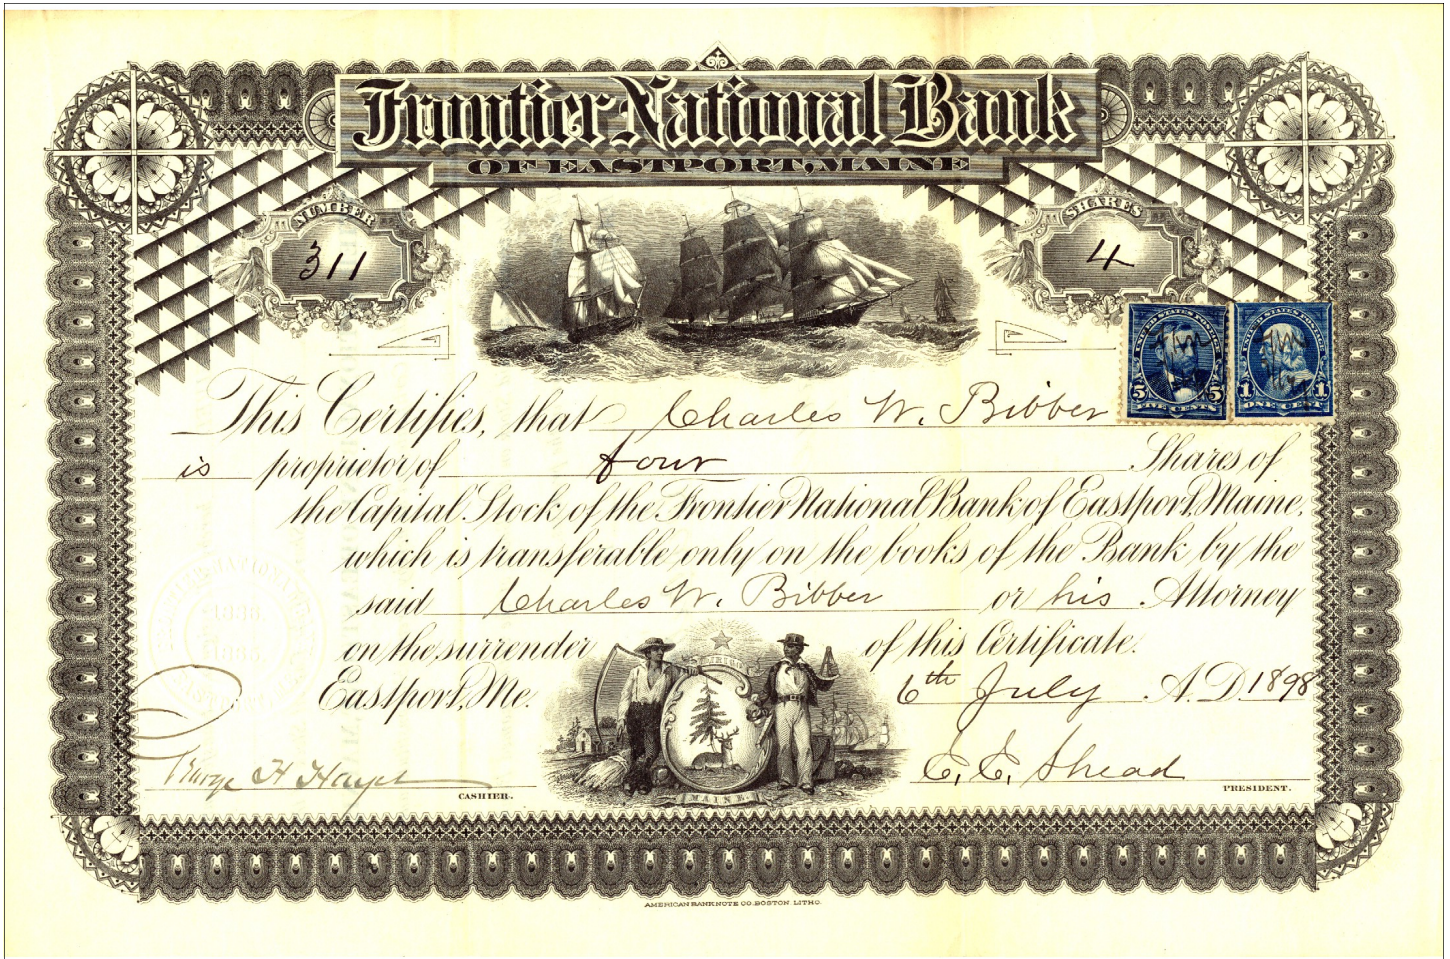 Frontier National Bank
OF EASTPORT, MAINE
NUMBER
311
SHARES
4
UNITED STATES POSTAGE
5 5
FIVE CENTS
UNITED STATES POSTAGE
1 1
ONE CENT
This Certifies, that Charles W. Bibber
is proprietor of four Shares of
the Capital Stock of the Frontier National Bank of Eastport, Maine,
which is transferable only on the books of the Bank by the
said Charles W. Bibber or his Attorney
on the surrender of this Certificate.
Eastport, Me. 6th July A.D. 1898
FRONTIER NATIONAL BANK
1836.
1865.
EASTPORT
DIRIGO
MAINE
George H Hayes
CASHIER.
E. E. Shead
PRESIDENT.
AMERICAN BANK NOTE CO. BOSTON LITHO.